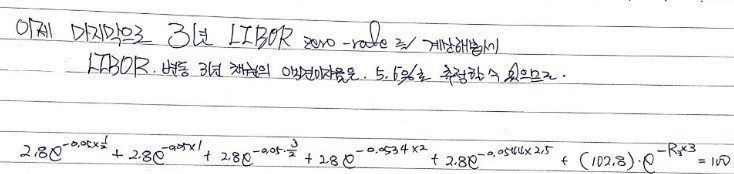 이제 마지막으로 3년 LIBOR zero-rate를 계산해봅시
LIBOR. 변동 3년 채권의 이표이자율은. 5.6%로 추정할 수 있으므로.
2.8e^{-0.05×\frac{1}{2}} + 2.8e^{-0.05×1} + 2.8e^{-0.05·\frac{3}{2}} + 2.8e^{-0.0534×2} + 2.8e^{-0.0544×2.5} + (102.8)·e^{-R_3×3} = 100